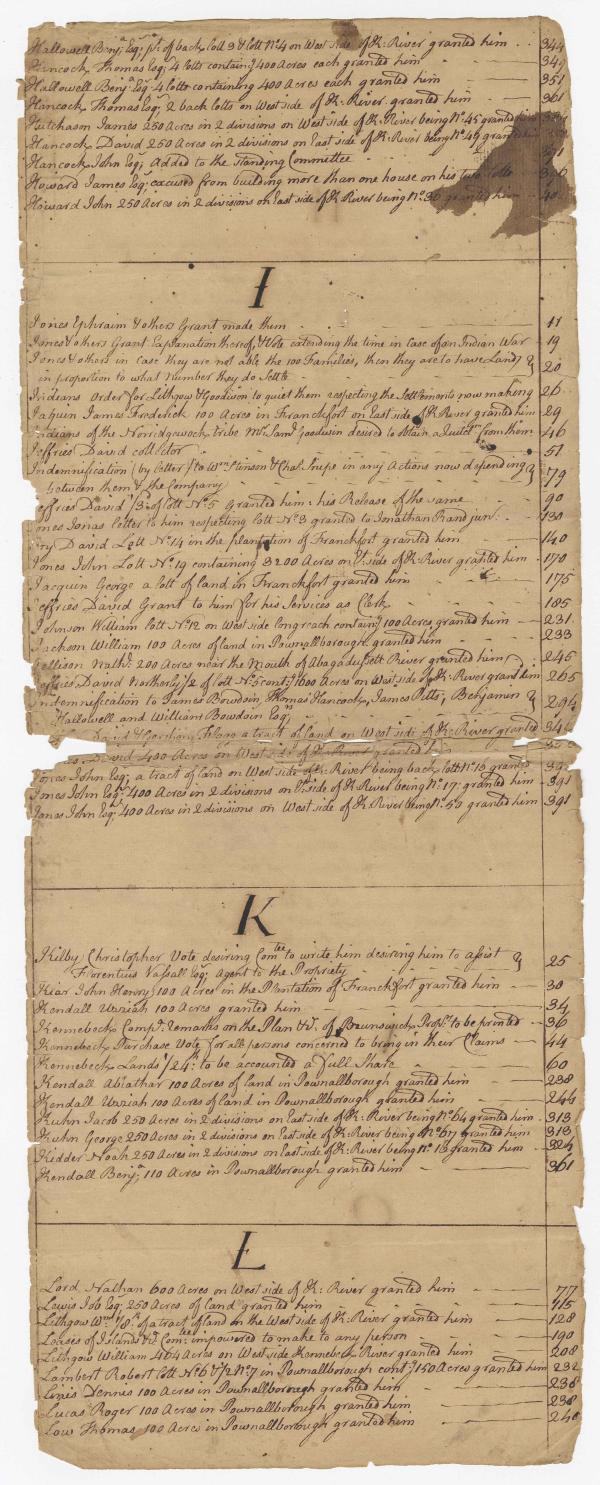 Hallowell Benjᵃ Esqʳ pᵗ of back Lott 3 & Lott Nº4 on West side of K: River granted him 344
Hancock Thomas Esqʳ 4 Lotts containg 400 Acres each granted him 34
Hallowell Benjᵃ Esqʳ 4 Lotts containing 400 Acres each granted him 351
Hancock Thomas Esqʳ 2 back Lotts on West side of K: River granted him 361
Hutchason James 250 Acres in 2 divisions on West side of K: River being Nº 45 granted him
Hancock David 250 Acres in 2 divisions on East side of K: River being Nº 49 granted him
Hancock John Esqʳ Added to the Standing Committee
Howard James Esqʳ excused from building more than one house on his two Lotts
Howard John 250 Acres in 2 divisions on East side of K River being Nº 36 granted him
I
Jones Ephraim & others Grant made them 11
Jones & others Grant Explanation thereof, & Vote extending the time in case of an Indian War 19
Jones & others in case they are not able the 100 Families, then they are to have Land
in proportion to what number they do Settle 20
Indians Order for Lithgow & Goodwin to quiet them respecting the Settlements now making 26
Jaquin James Frederick 100 Acres in Franckfort on East side of K River granted him 29
Indians of the Norridgewock tribe Mʳ Samˡ Goodwin desired to obtain a Quitclᵐ from them 46
Jeffries David collector 51
Indemnification (by letter) to Wᵐ Stinson & Chaˢ Snipe in any Actions now depending
between them & the Company 79
Jeffries David 1/3ᵈ of Lott Nº 5 granted him: his Release of the same 90
Jones Jonas letter to him respecting Lott Nº 3 granted to Jonathan Rand junʳ 130
David Lott Nº 14 in the plantation of Franckfort granted him 140
Jones John Lott Nº 19 containing 3200 Acres on Wᵗ side of K: River granted him 170
Jacquin George a lott of land in Franckfort granted him 175
Jeffries David Grant to him for his Services as Clerk 185
Johnson William Lott Nº 12 on West side Longreach containg 100 Acres granted him 231
Jackson William 100 Acres of land in Pownallborough granted him 233
Jellison Nathˡ 200 Acres near the Mouth of Abagadussett River granted him 245
Jeffries David Northerly 1/2 of Lott Nº 5 contg 1600 Acres on West side of K: River grantᵈ him 265
Indemnification to James Bowdoin, Thomas Hancock, James Pitts, Benjamin
Hallowell and William Bowdoin Esqʳˢ 294
a tract of land on West side of K: River granted
David 400 Acres on West side of K: River granted
Jones John Esqʳ a tract of land on West side of K: River being back lott Nº 10 granted
Jones John Esqʳ 400 Acres in 2 divisions on Wᵗ side of K River being Nº 17: granted him 391
Jones John Esqʳ 400 Acres in 2 divisions on West side of K: River being Nº 50 granted him 391
K
Kilby Christopher Vote desiring Comᵗᵉᵉ to write him desiring him to assist
Florentius Vassall Esqʳ Agent to the Propriety 25
Kiar John Henry 100 Acres in the Plantation of Franckfort granted him 30
Kendall Uzziah 100 Acres granted him 34
Kennebeck Compʸˢ Remarks on the Plan &c. of Brunswick Propʳˢ to be printed 36
Kennebeck Purchase Vote for all persons concerned to bring in their Claims 44
Kennebeck Lands 1/24ᵗʰ to be accounted a full Share 60
Kendall Abiathar 100 Acres of land in Pownallborough granted him 238
Kendall Uzziah 100 Acres of land in Pownallborough granted him 244
Kuhn Jacob 250 Acres in 2 divisions on East side of K: River being Nº 64 granted him 313
Kuhn George 250 Acres in 2 divisions on East side of K: River being Nº 67 granted him 313
Kidder Noah 250 Acres in 2 divisions on East side of K: River being Nº 13 granted him 324
Kendall Benjᵃ 110 Acres in Pownallborough granted him 361
L
Lord Nathan 600 Acres on West side of K: River granted him 77
Lewis Job Esqʳ 250 Acres of land granted him 115
Lithgow Wᵐ 1/8ᵗʰ of a tract of land on the West side of K: River granted him 128
Leases of Islands &c. Comᵗᵉᵉ impowered to make to any person 190
Lithgow William 464 Acres on West side Kennebeck River granted him 208
Lambert Robert Lott Nº 6 & 1/2 Nº 7 in Pownallborough contg 150 Acres granted him 232
Lewis Dennis 100 Acres in Pownallborough granted him 238
Lucas Roger 100 Acres in Pownallborough granted him 238
Low Thomas 100 Acres in Pownallborough granted him 240